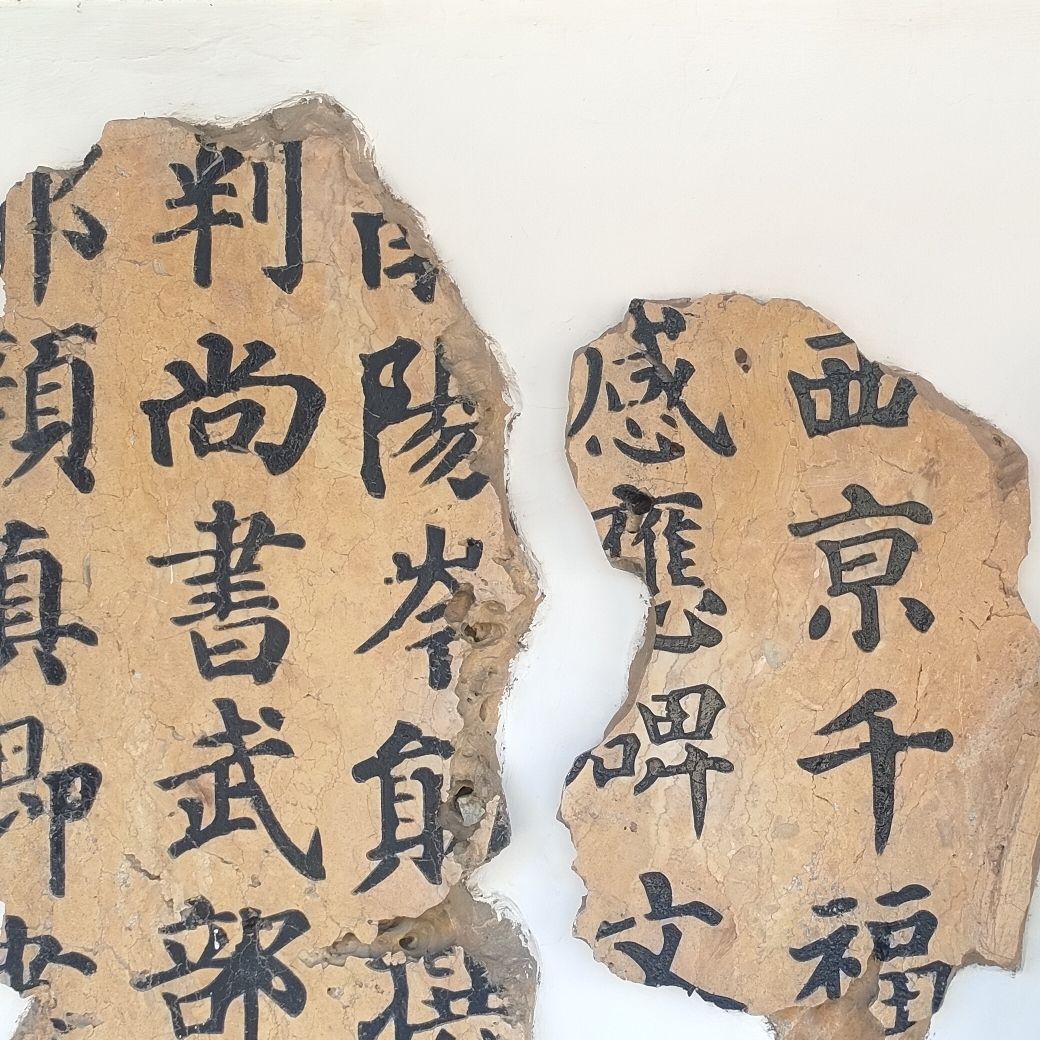 西京千福
感應碑文
陽岑勛撰
判尚書武部
顏真卿